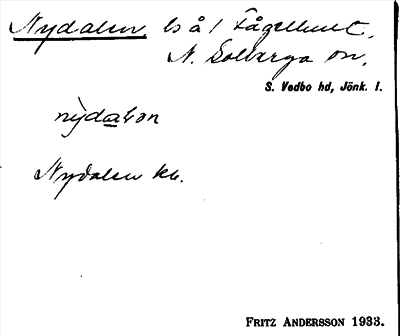 Nydalen ls å 1 Fågelhult,
N. Solberga sn,
S. Vedbo hd, Jönk. l.
nỳdalən
Nydalen kb.
FRITZ ANDERSSON 1933.